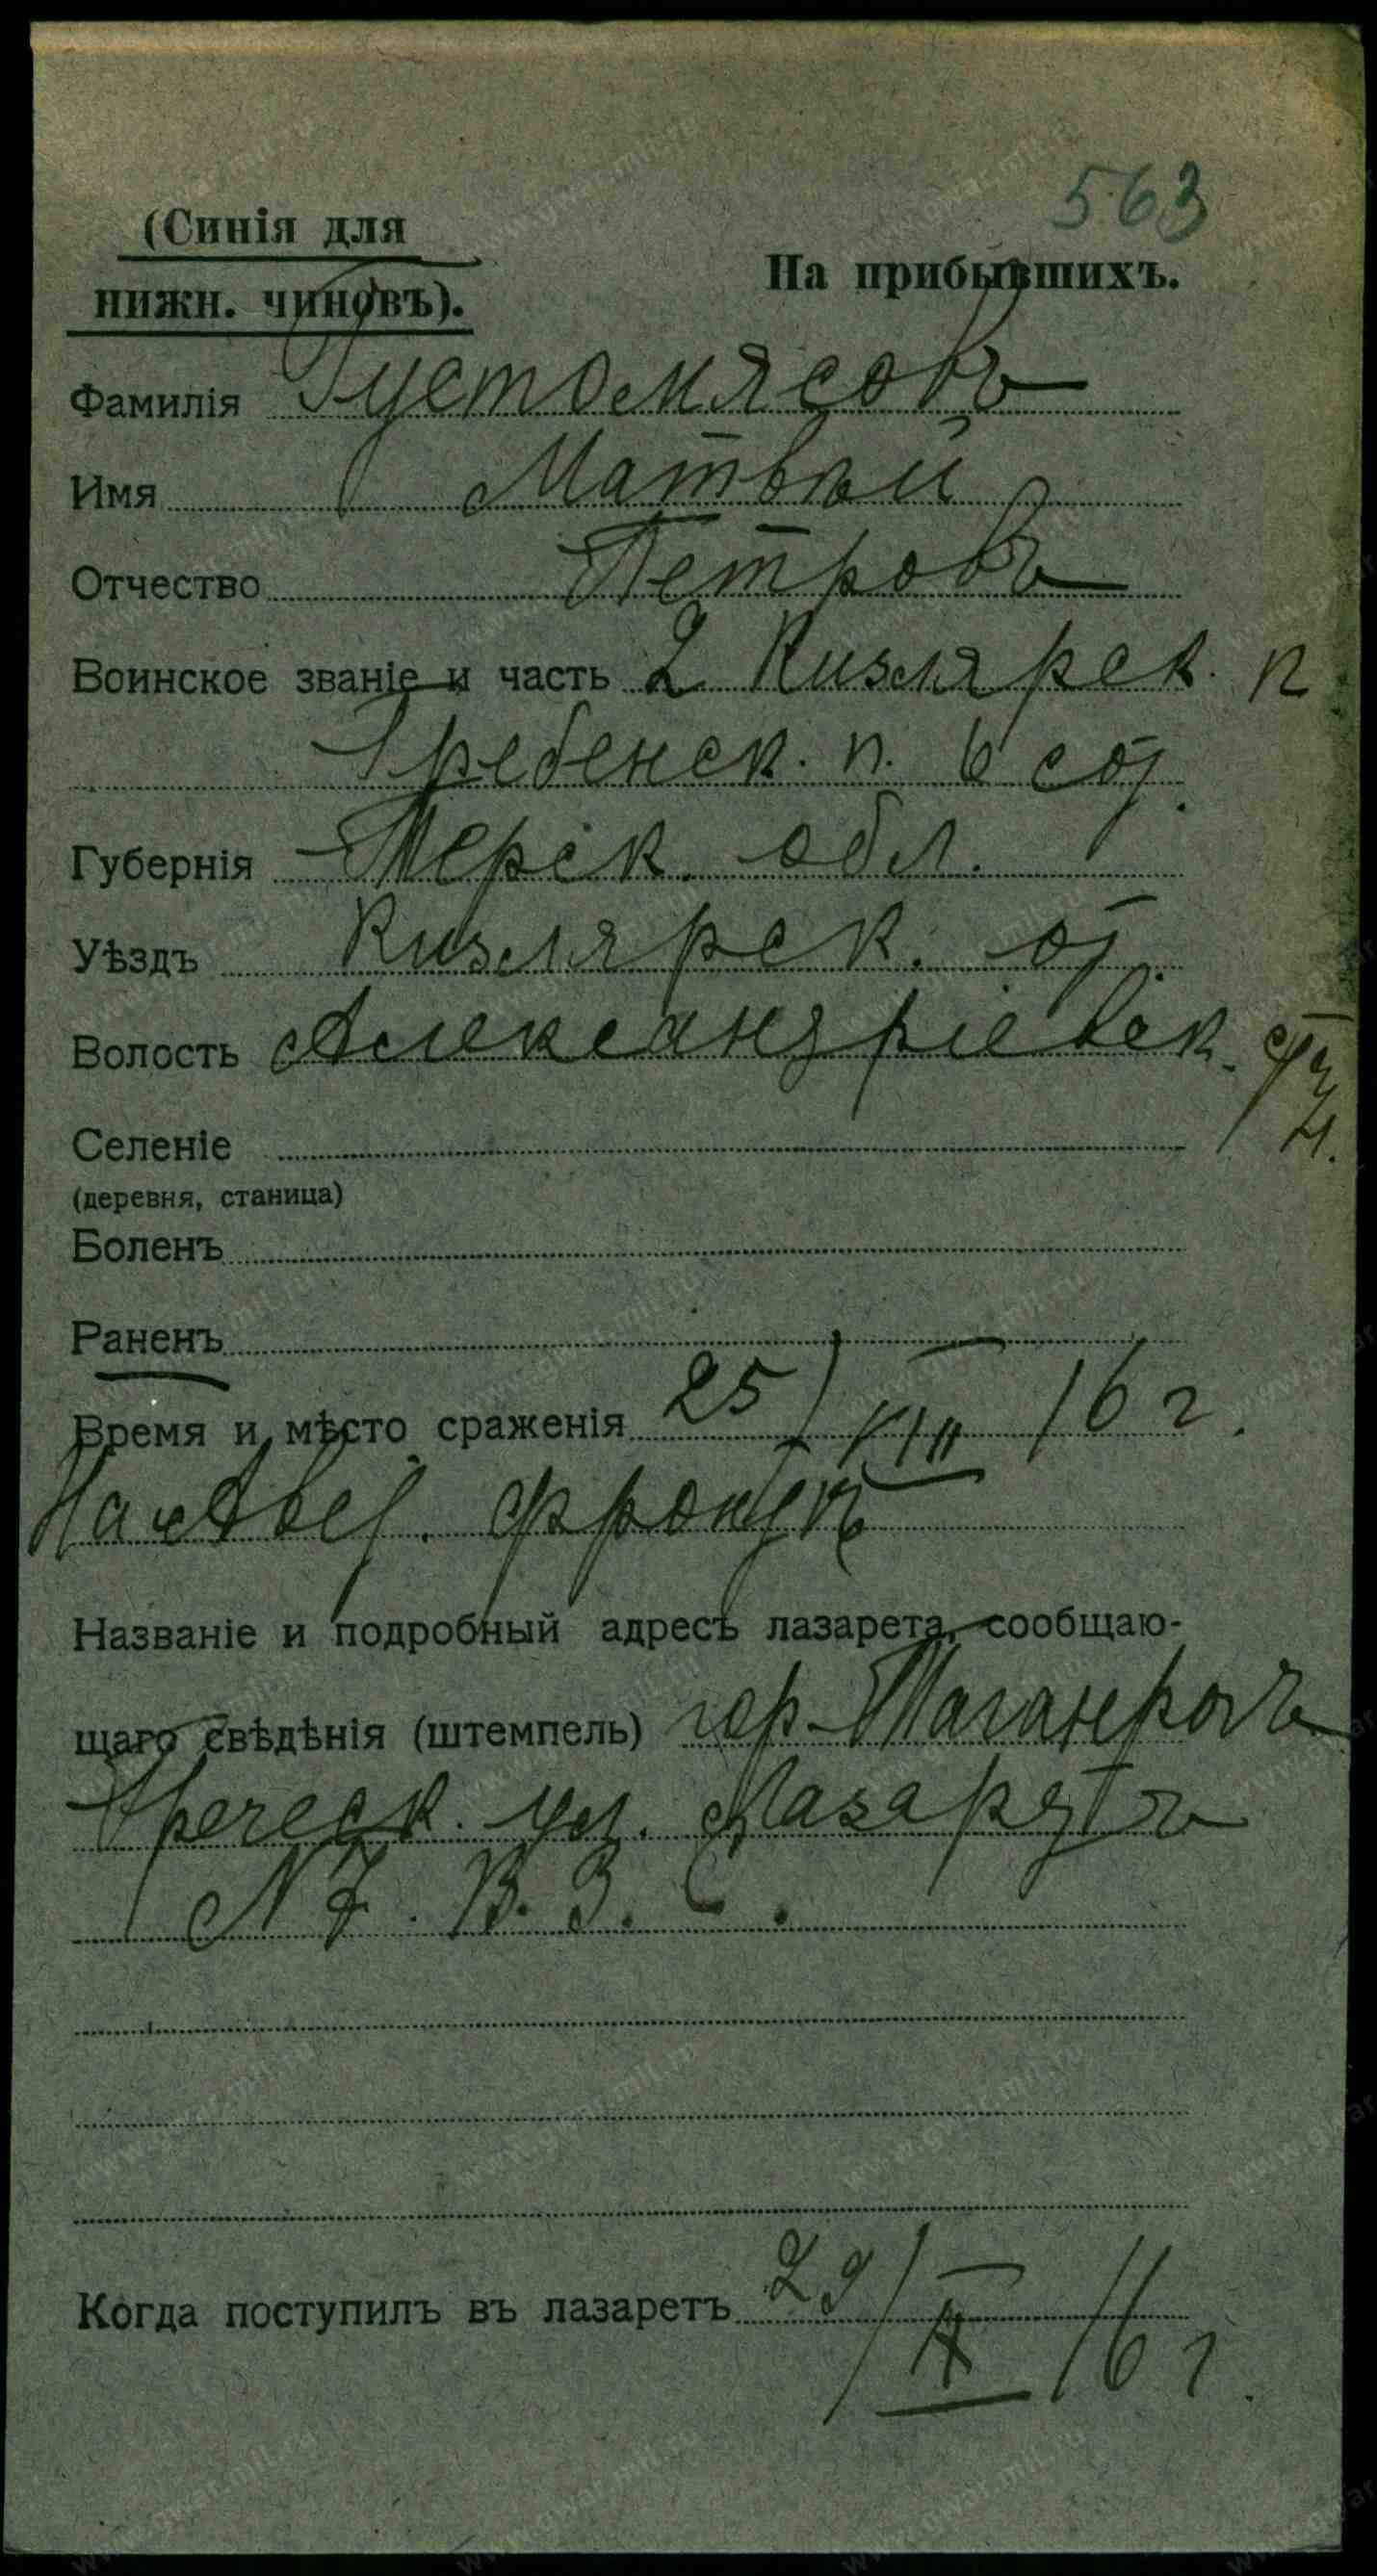 563
(Синія для
нижн. чиновъ).
На прибывшихъ.
Фамилія Густомясовъ
Имя Матвѣй
Отчество Петровъ
Воинское званіе и часть 2 Кизлярск. п
Гребенск. п. 6 сот.
Губернія Терск. обл.
Уѣздъ Кизлярск. от.
Волость Александріевск. ст.
Селеніе
(деревня, станица)
Боленъ
Раненъ
Время и мѣсто сраженія 25/VIII 16 г.
На Авст. фронтѣ
Названіе и подробный адресъ лазарета, сообщаю-
щаго свѣдѣнія (штемпель) гор. Таганрогъ
Греческ. ул. Лазаретъ
№ 7. В. З. С.
Когда поступилъ въ лазаретъ 29/IX 16 г.
www.gwar.mil.ru